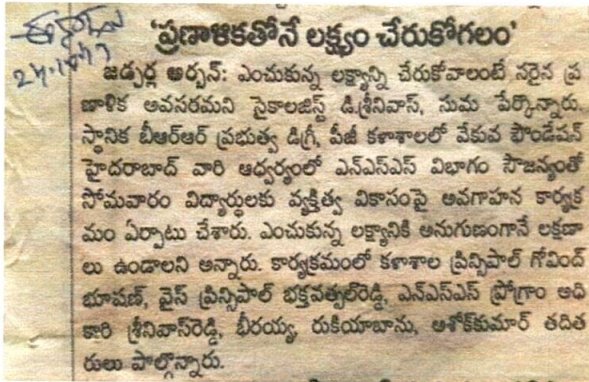 ఈనాడు
‘ప్రణాళికతోనే లక్ష్యం చేరుకోగలం’
జడ్చర్ల అర్బన్: ఎంచుకున్న లక్ష్యాన్ని చేరుకోవాలంటే సరైన ప్ర
ణాళిక అవసరమని సైకాలజిస్ట్ డి.శ్రీనివాస్, సుమ పేర్కొన్నారు.
స్థానిక బీఆర్ఆర్ ప్రభుత్వ డిగ్రీ, పీజీ కళాశాలలో వేకువ ఫౌండేషన్
హైదరాబాద్ వారి ఆధ్వర్యంలో ఎన్ఎస్ఎస్ విభాగం సౌజన్యంతో
సోమవారం విద్యార్థులకు వ్యక్తిత్వ వికాసంపై అవగాహన కార్యక్ర
మం ఏర్పాటు చేశారు. ఎంచుకున్న లక్ష్యానికి అనుగుణంగానే లక్షణా
లు ఉండాలని అన్నారు. కార్యక్రమంలో కళాశాల ప్రిన్సిపాల్ గోవింద్
భూషణ్, వైస్ ప్రిన్సిపాల్ భక్తవత్సల్‌రెడ్డి, ఎన్ఎస్ఎస్ ప్రోగ్రాం అధి
కారి శ్రీనివాస్‌రెడ్డి, భీరయ్య, రుకియాబాను, అశోక్‌కుమార్ తదిత
రులు పాల్గొన్నారు.